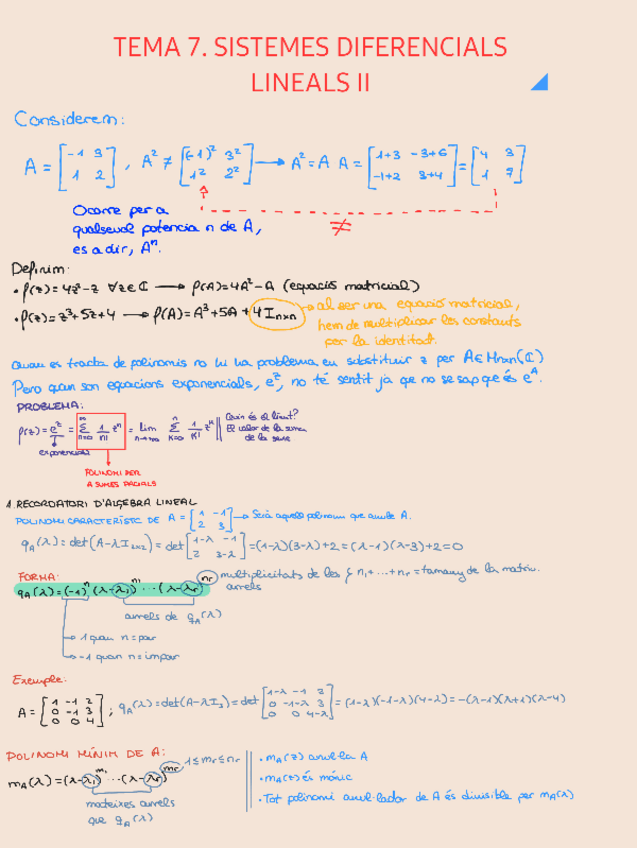 TEMA 7. SISTEMES DIFERENCIALS
LINEALS II
Considerem:
A = [-1 3; 1 2], A² ≠ [(-1)² 3²; 1² 2²] → A² = A A = [1+3 -3+6; -1+2 3+4] = [4 3; 1 7]
≠
Ocorre per a
qualsevol potencia n de A,
es a dir, Aⁿ.
Definim:
• p(z) = 4z²-z ∀z∈ℂ → p(A) = 4A²-A (equació matricial)
• p(z) = z³+5z+4 → p(A) = A³+5A+4Iₙₓₙ
→ al ser una equació matricial,
hem de multiplicar les constants
per la identitat.
Quan es tracta de polinomis no hi ha problema en substituir z per A∈Mnxn(ℂ)
Pero quan son equacions exponencials, e^z, no té sentit ja que no se sap que és e^A.
PROBLEMA:
p(z) = e^z = ∑_{n=0}^{∞} 1/n! zⁿ = lim_{n→+∞} ∑_{k=0}^{n} 1/k! z^k
Quin és el límit?
El valor de la suma
de la serie
exponencial
POLINOMI PER
A SUMES PARCIALS
1. RECORDATORI D'ÀLGEBRA LINEAL
POLINOMI CARACTERÍSTIC DE A = [1 -1; 2 3] → Serà aquell polinomi que anul·le A.
q_A(λ) = det(A-λI₂ₓ₂) = det[1-λ -1; 2 3-λ] = (1-λ)(3-λ)+2 = (λ-1)(λ-3)+2 = 0
FORMA:
q_A(λ) = (-1)ⁿ (λ-λ₁)^{n₁} ··· (λ-λr)^{nr}
multiplicitats de les arrels { n₁+...+nr = tamany de la matriu.
arrels de q_A(λ)
→ 1 quan n = par
→ -1 quan n = impar
Exemple:
A = [1 -1 2; 0 -1 3; 0 0 4]; q_A(λ) = det(A-λI₃) = det[1-λ -1 2; 0 -1-λ 3; 0 0 4-λ] = (1-λ)(-1-λ)(4-λ) = -(λ-1)(λ+1)(λ-4)
POLINOMI MÍNIM DE A:
m_A(λ) = (λ-λ₁)^{m₁} ··· (λ-λr)^{mr}
1 ≤ mr ≤ nr
mateixes arrels
que q_A(λ)
• m_A(z) anul·la A
• m_A(z) és mònic
• Tot polinomi anul·lador de A és divisible per m_A(λ)